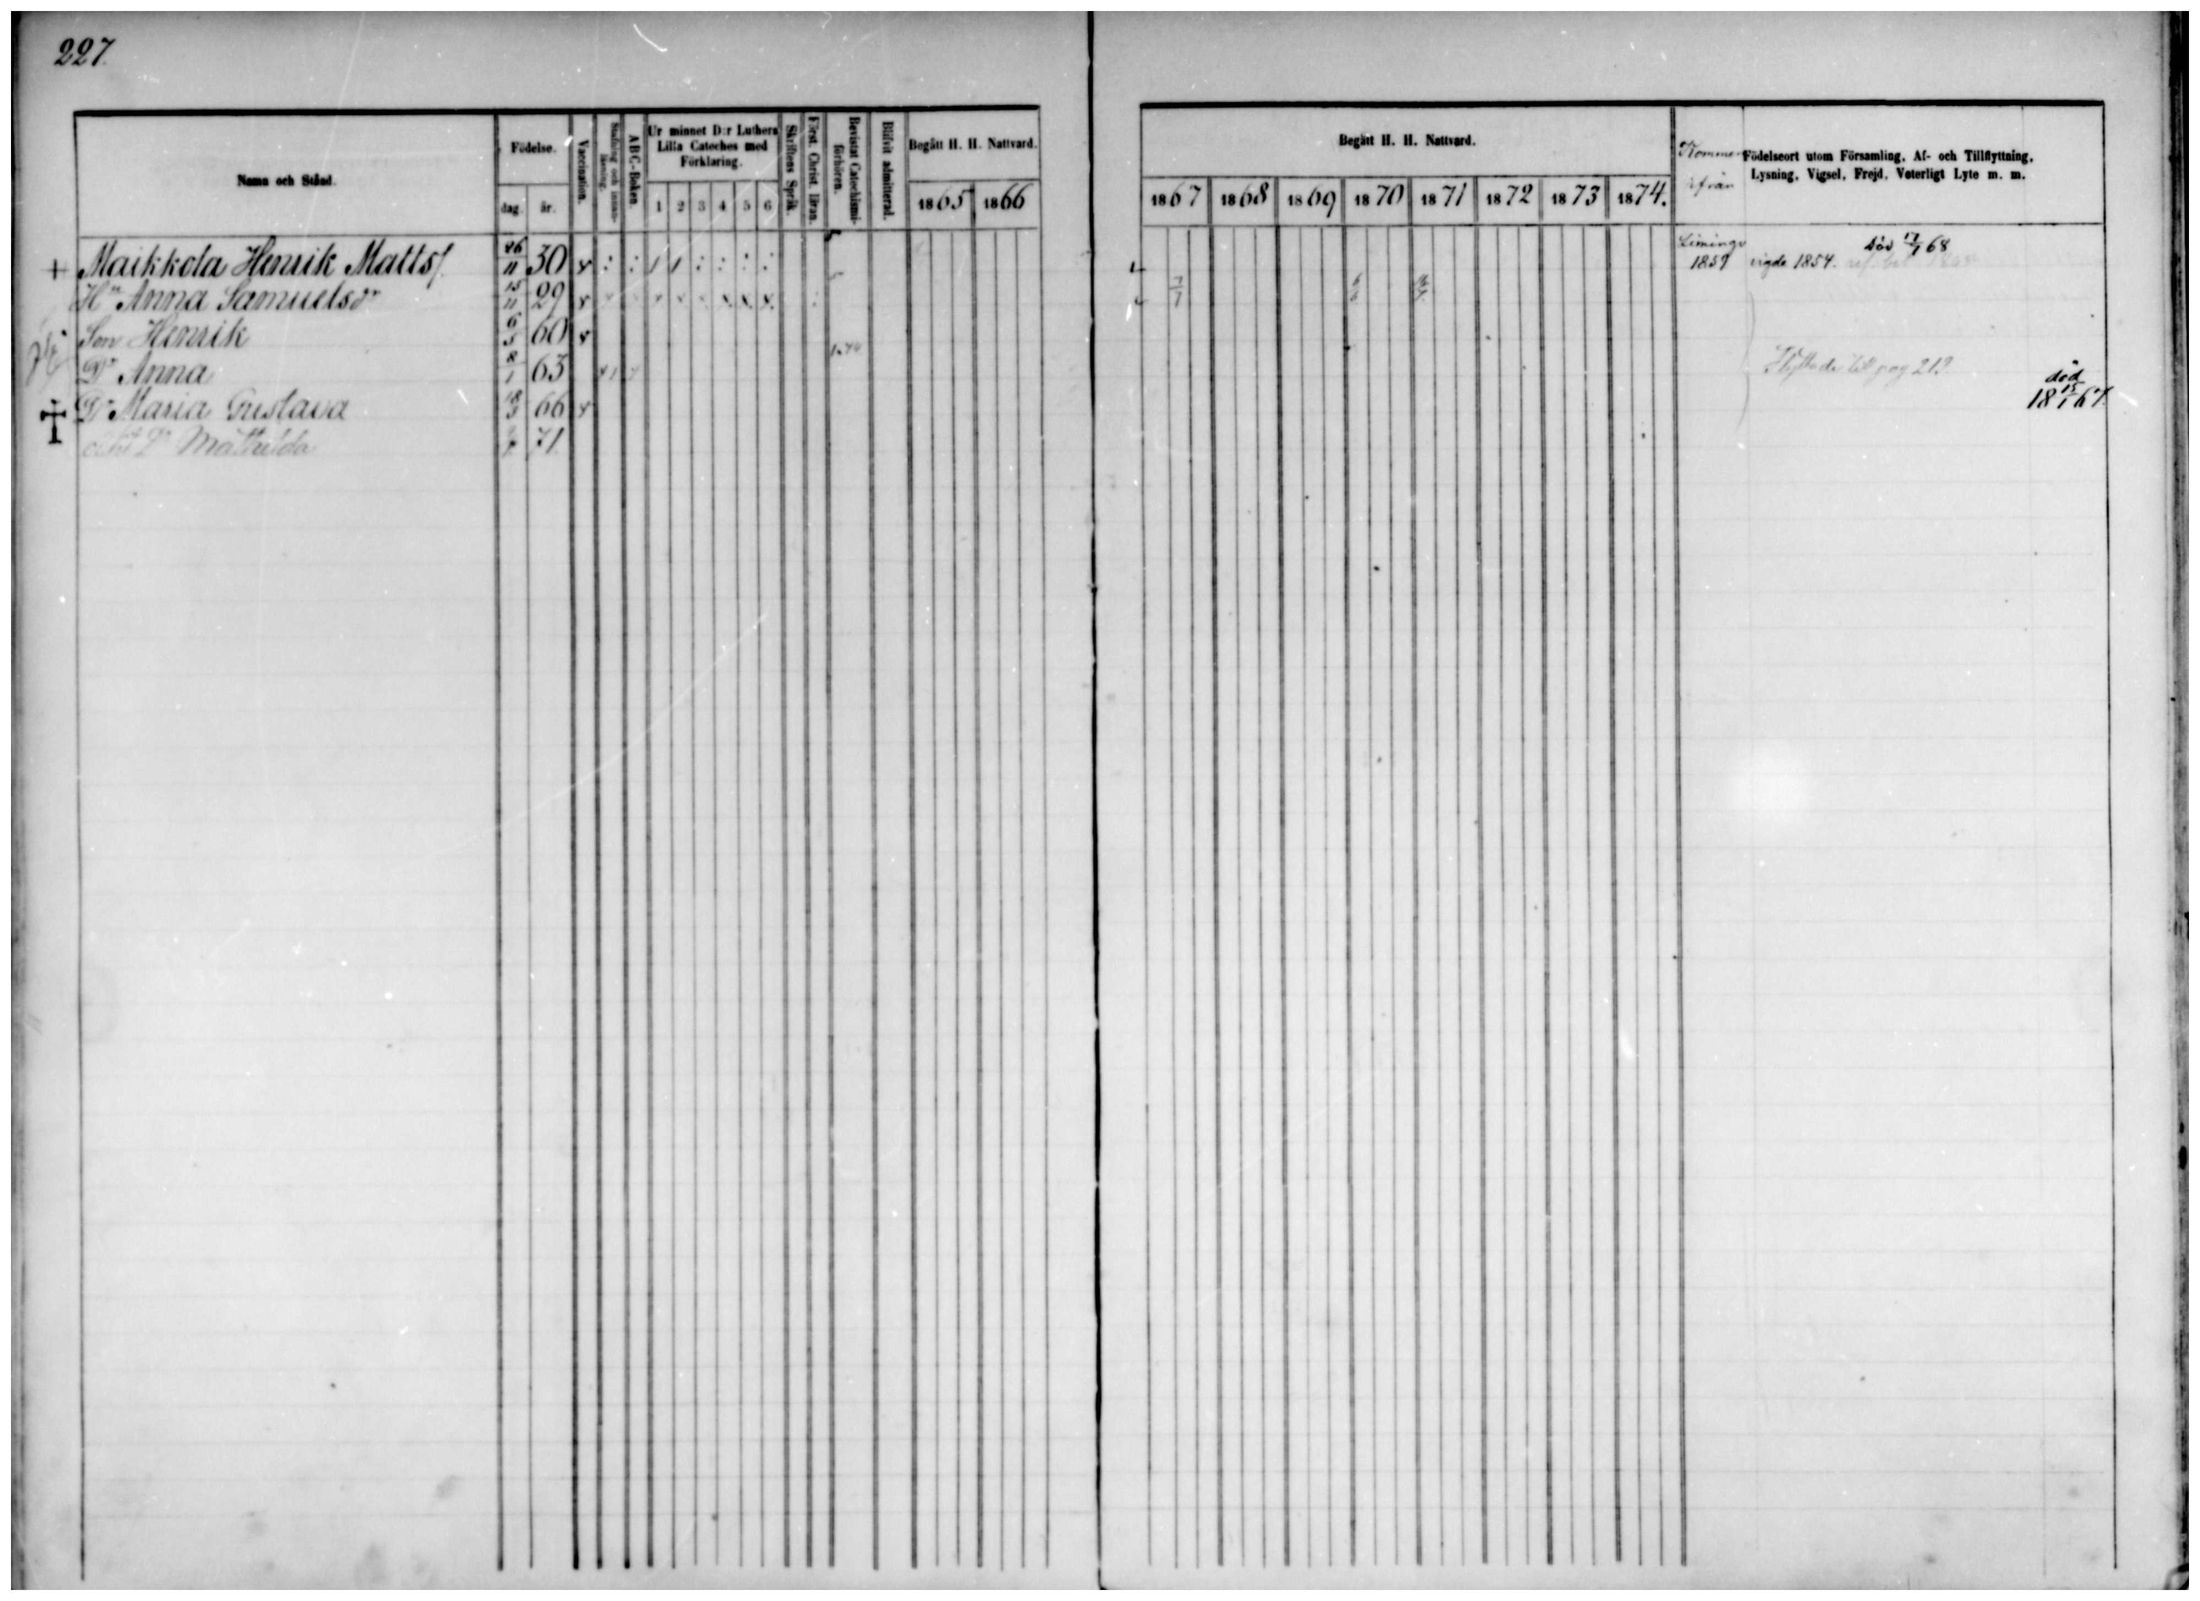 227.
Namn och Stånd.
Födelse.
dag. år.
Vaccination.
Stafning och innanläsning.
ABC-Boken.
Ur minnet D:r Luthers
Lilla Cateches med
Förklaring.
1 2 3 4 5 6
Skriftens Språk.
Först. Christ. läran.
Bevistat Catechismiförhören.
Blifvit admitterad.
Begått H. H. Nattvard.
1865 1866
Begått H. H. Nattvard.
1867 1868 1869 1870 1871 1872 1873 1874.
Kommen
ifrån
Födelseort utom Församling, Af- och Tillflyttning,
Lysning, Vigsel, Frejd, Veterligt Lyte m. m.
+ Maikkola Henrik Matts/. 26/11 30 Limingo 1859 vigde 1854. död 17/1 68
Hu Anna Samuelsdr 15/11 29 7/7
Son Henrik 6/5 60
Dr Anna 8/1 63 Flyttade till pag 219
† Dr Maria Gustava 18/3 66 död 15/1 1867.
Dr Mathilda 71.